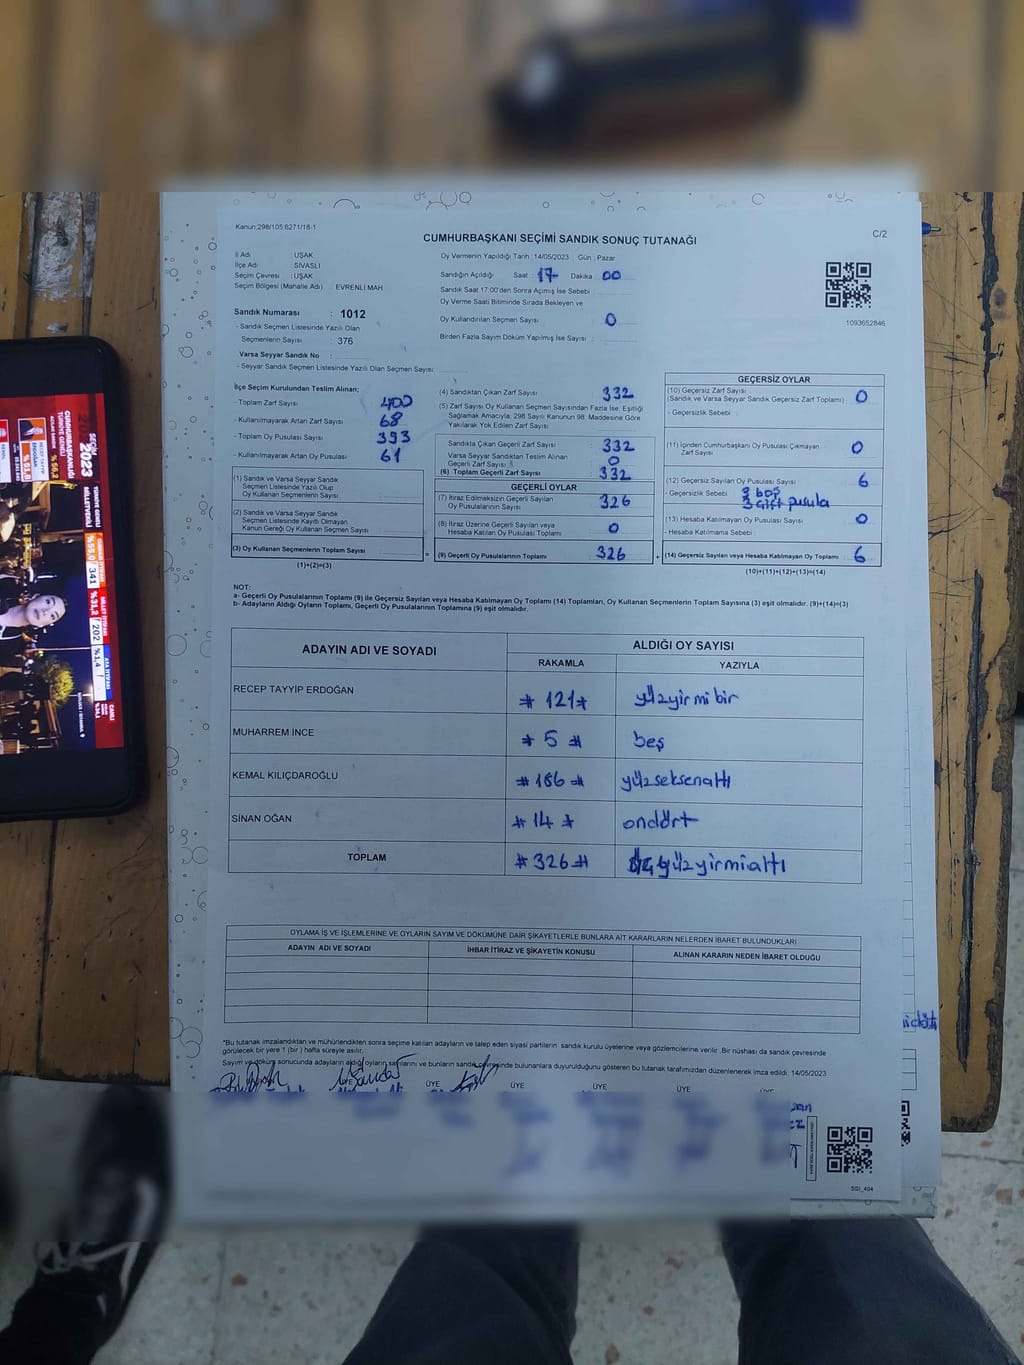 Kanun;298/105;6271/18-1
C/2
CUMHURBAŞKANI SEÇİMİ SANDIK SONUÇ TUTANAĞI
İl Adı : UŞAK
İlçe Adı : SİVASLI
Seçim Çevresi : UŞAK
Seçim Bölgesi (Mahalle Adı) : EVRENLİ MAH
Sandık Numarası : 1012
- Sandık Seçmen Listesinde Yazılı Olan
Seçmenlerin Sayısı : 376
Varsa Seyyar Sandık No :
- Seyyar Sandık Seçmen Listesinde Yazılı Olan Seçmen Sayısı :
Oy Vermenin Yapıldığı Tarih : 14/05/2023 Gün : Pazar
Sandığın Açıldığı Saat : 17- Dakika : 00
Sandık Saat 17:00'den Sonra Açımış İse Sebebi :
Oy Verme Saati Bitiminde Sırada Bekleyen ve
Oy Kullandırılan Seçmen Sayısı : 0
Birden Fazla Sayım Döküm Yapılmış İse Sayısı :
1093652846
İlçe Seçim Kurulundan Teslim Alınan;
- Toplam Zarf Sayısı 400
- Kullanılmayarak Artan Zarf Sayısı 68
- Toplam Oy Pusulası Sayısı 393
- Kullanılmayarak Artan Oy Pusulası 61
(1) Sandık ve Varsa Seyyar Sandık
Seçmen Listesinde Yazılı Olup
Oy Kullanan Seçmenlerin Sayısı :
(2) Sandık ve Varsa Seyyar Sandık
Seçmen Listesinde Kayıtlı Olmayan
Kanun Gereği Oy Kullanan Seçmen Sayısı :
(3) Oy Kullanan Seçmenlerin Toplam Sayısı :
(1)+(2)=(3)
(4) Sandıktan Çıkan Zarf Sayısı : 332
(5) Zarf Sayısı Oy Kullanan Seçmen Sayısından Fazla İse, Eşitliği
Sağlamak Amacıyla; 298 Sayılı Kanunun 98. Maddesine Göre
Yakılarak Yok Edilen Zarf Sayısı :
Sandıkta Çıkan Geçerli Zarf Sayısı : 332
Varsa Seyyar Sandıktan Teslim Alınan
Geçerli Zarf Sayısı : 0
(6) Toplam Geçerli Zarf Sayısı : 332
GEÇERLİ OYLAR
(7) İtiraz Edilmeksizin Geçerli Sayılan
Oy Pusulalarının Toplamı : 326
(8) İtiraz Üzerine Geçerli Sayılan veya
Hesaba Katılan Oy Pusulası Toplamı : 0
(9) Geçerli Oy Pusulalarının Toplamı : 326
GEÇERSİZ OYLAR
(10) Geçersiz Zarf Sayısı
(Sandık ve Varsa Seyyar Sandık Geçersiz Zarf Toplamı) : 0
- Geçersizlik Sebebi :
(11) İçinden Cumhurbaşkanı Oy Pusulası Çıkmayan
Zarf Sayısı : 0
(12) Geçersiz Sayılan Oy Pusulası Sayısı : 6
- Geçersizlik Sebebi : 3 boş
3 çift pusula
(13) Hesaba Katılmayan Oy Pusulası Sayısı : 0
- Hesaba Katılmama Sebebi :
(14) Geçersiz Sayılan veya Hesaba Katılmayan Oy Toplamı : 6
(10)+(11)+(12)+(13)=(14)
NOT:
a- Geçerli Oy Pusulalarının Toplamı (9) ile Geçersiz Sayılan veya Hesaba Katılmayan Oy Toplamı (14) Toplamları, Oy Kullanan Seçmenlerin Toplam Sayısına (3) eşit olmalıdır. (9)+(14)=(3)
b- Adayların Aldığı Oyların Toplamı, Geçerli Oy Pusulalarının Toplamına (9) eşit olmalıdır.
ADAYIN ADI VE SOYADI
ALDIĞI OY SAYISI
RAKAMLA YAZIYLA
RECEP TAYYİP ERDOĞAN # 121 # yüzyirmibir
MUHARREM İNCE # 5 # beş
KEMAL KILIÇDAROĞLU # 186 # yüzseksenaltı
SİNAN OĞAN # 14 # ondört
TOPLAM # 326 # üçyüzyirmialtı
OYLAMA İŞ VE İŞLEMLERİNE VE OYLARIN SAYIM VE DÖKÜMÜNE DAİR ŞİKAYETLERLE BUNLARA AİT KARARLARIN NELERDEN İBARET BULUNDUKLARI
ADAYIN ADI VE SOYADI İHBAR İTİRAZ VE ŞİKAYETİN KONUSU ALINAN KARARIN NEDEN İBARET OLDUĞU
*Bu tutanak imzalandıktan ve mühürlendikten sonra seçime katılan adayların ve talep eden siyasi partilerin sandık kurulu üyelerine veya gözlemcilerine verilir .Bir nüshası da sandık çevresinde
görülecek bir yere 1 (bir ) hafta süreyle asılır.
Sayım ve döküm sonucunda adayların aldığı oyların sayılarını ve bunların sandık çevresinde bulunanlara duyurulduğunu gösteren bu tutanak tarafımızdan düzenlenerek imza edildi. 14/05/2023
ÜYE ÜYE ÜYE ÜYE ÜYE
SSİ_404
SEÇİM 2023
CUMHURBAŞKANLIĞI
TÜRKİYE GENELİ